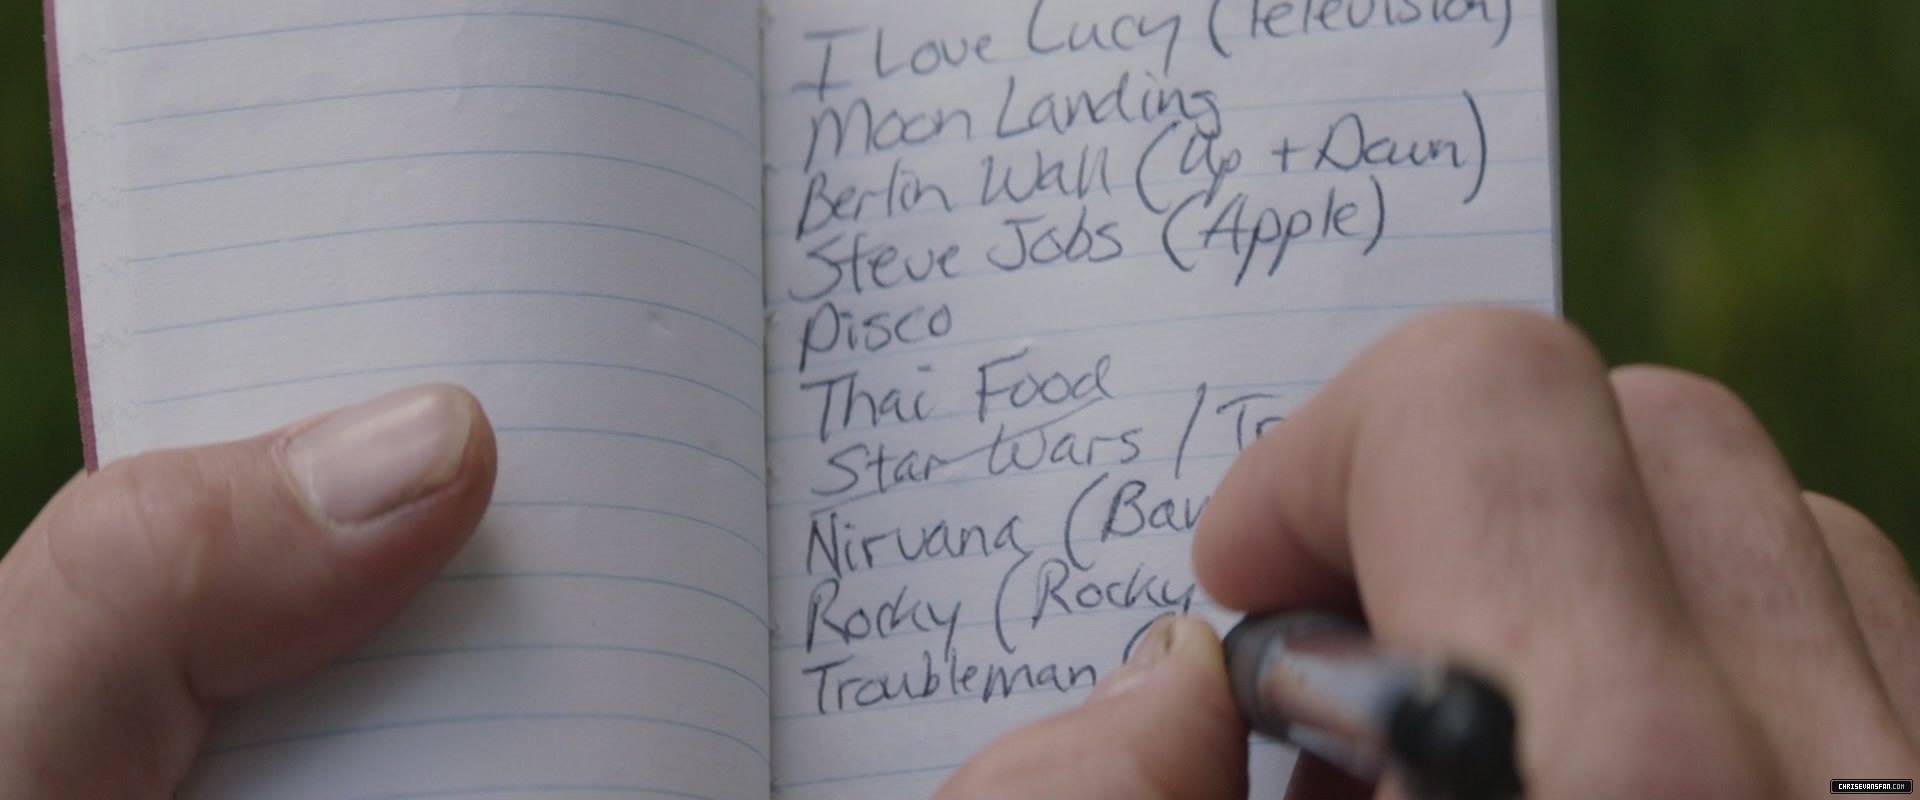 I Love Lucy (Television)
Moon Landing
Berlin Wall (Up + Down)
Steve Jobs (Apple)
Disco
Thai Food
Star Wars /
Nirvana (
Rocky (Rocky
Troubleman (
CHRISEVANSFAN.COM